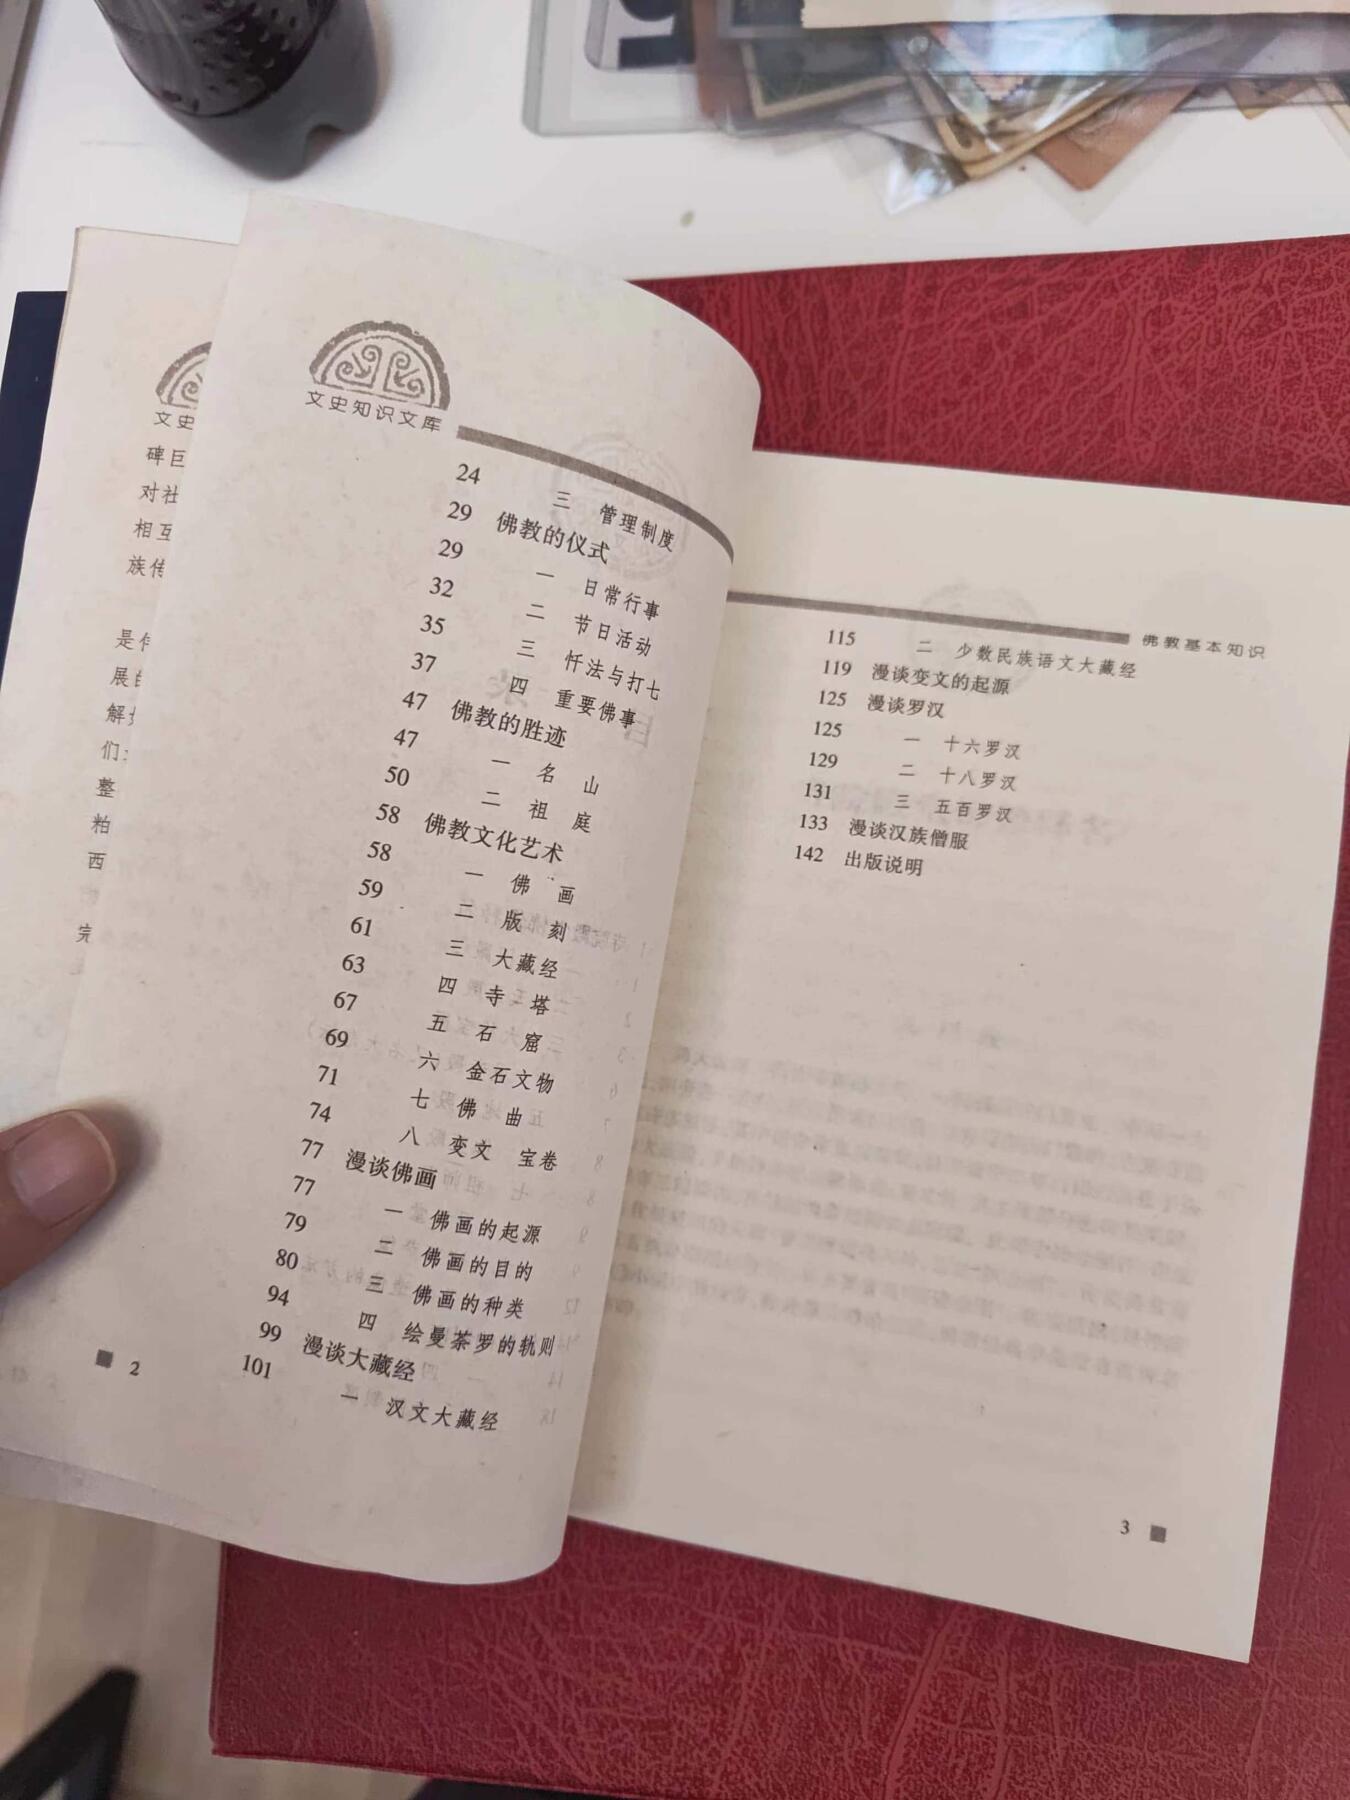 文史
碑巨
对社
相互
族传
展的
们
整
粕
西
完
文史知识文库
24 三 管理制度
29 佛教的仪式
29 一 日常行事
32 二 节日活动
35 三 忏法与打七
37 四 重要佛事
47 佛教的胜迹
47 一 名 山
50 二 祖 庭
58 佛教文化艺术
58 一 佛 画
59 二 版 刻
61 三 大藏经
63 四 寺 塔
67 五 石 窟
69 六 金石文物
71 七 佛 曲
74 八 变文 宝卷
77 漫谈佛画
77 一 佛画的起源
79 二 佛画的目的
80 三 佛画的种类
94 四 绘曼荼罗的轨则
99 漫谈大藏经
101 一 汉文大藏经
2
佛教基本知识
115 二 少数民族语文大藏经
119 漫谈变文的起源
125 漫谈罗汉
125 一 十六罗汉
129 二 十八罗汉
131 三 五百罗汉
133 漫谈汉族僧服
142 出版说明
3